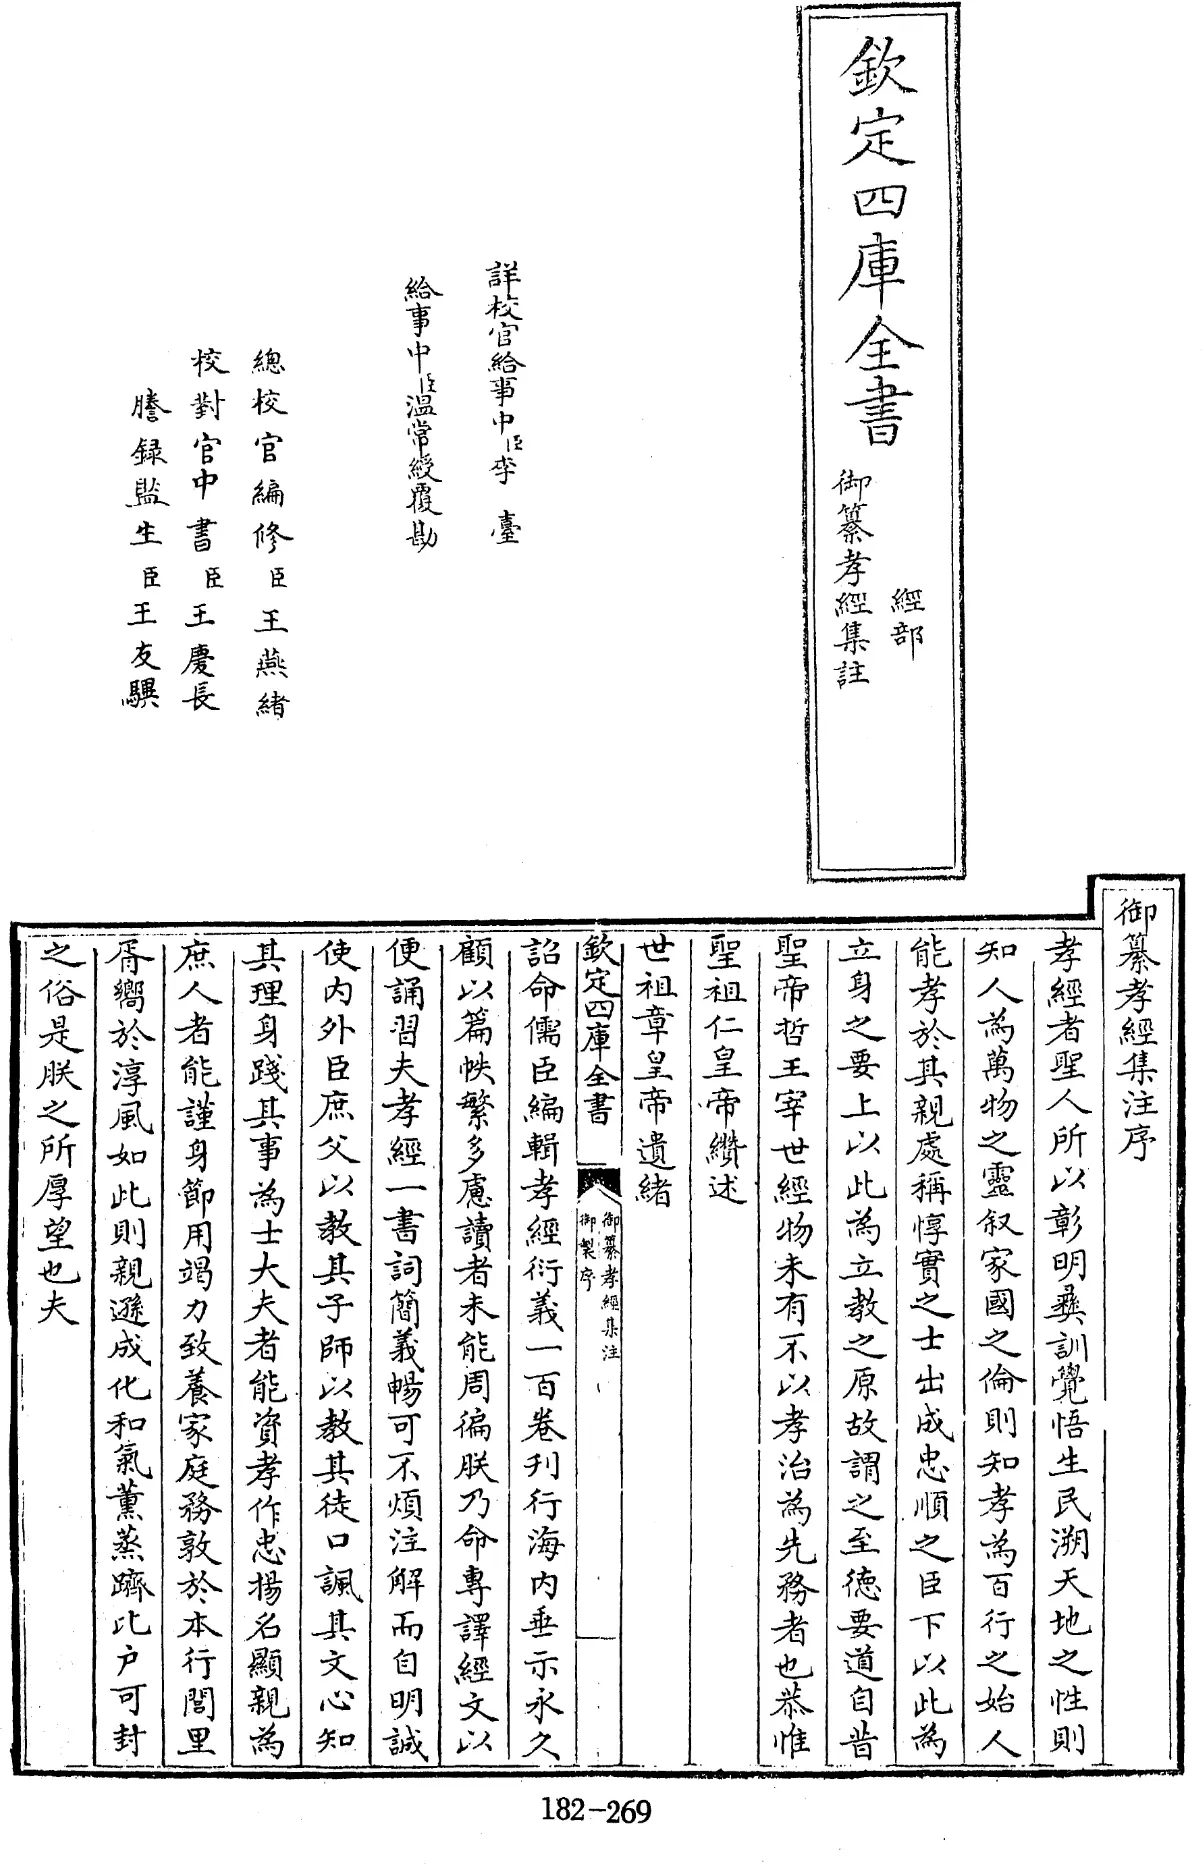 欽定四庫全書
經部
御纂孝經集註
詳校官給事中臣李臺
給事中臣温常綬覆勘
總校官編修臣王燕緒
校對官中書臣王慶長
謄録監生臣王友驥
御纂孝經集注序
孝經者聖人所以彰明彝訓覺悟生民溯天地之性則
知人為萬物之靈叙家國之倫則知孝為百行之始人
能孝於其親處稱惇實之士出成忠順之臣下以此為
立身之要上以此為立教之原故謂之至德要道自昔
聖帝哲王宰世經物未有不以孝治為先務者也恭惟
聖祖仁皇帝纘述
世祖章皇帝遺緒
欽定四庫全書
御纂孝經集注
御製序
一
詔命儒臣編輯孝經衍義一百卷刊行海内垂示永久
顧以篇帙繁多慮讀者未能周徧朕乃命專譯經文以
便誦習夫孝經一書詞簡義暢可不煩注解而自明誠
使内外臣庶父以教其子師以教其徒口諷其文心知
其理身踐其事為士大夫者能資孝作忠揚名顯親為
庶人者能謹身節用竭力致養家庭務敦於本行閭里
胥嚮於淳風如此則親遜成化和氣薰蒸躋比户可封
之俗是朕之所厚望也夫
182-269